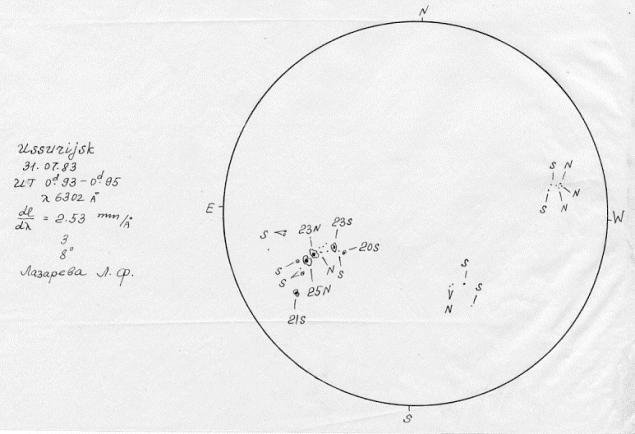 N
Ussurijsk
31.07.83
UT 0ᵈ.93-0ᵈ.95
λ 6302 Å
dl/dλ = 2.53 mm/Å
3
8°
Лазарева Л.Ф.
E
W
S N
N
S N
23N 23S
S
20S
S
S
N S
25N
21S
S
S
N
S